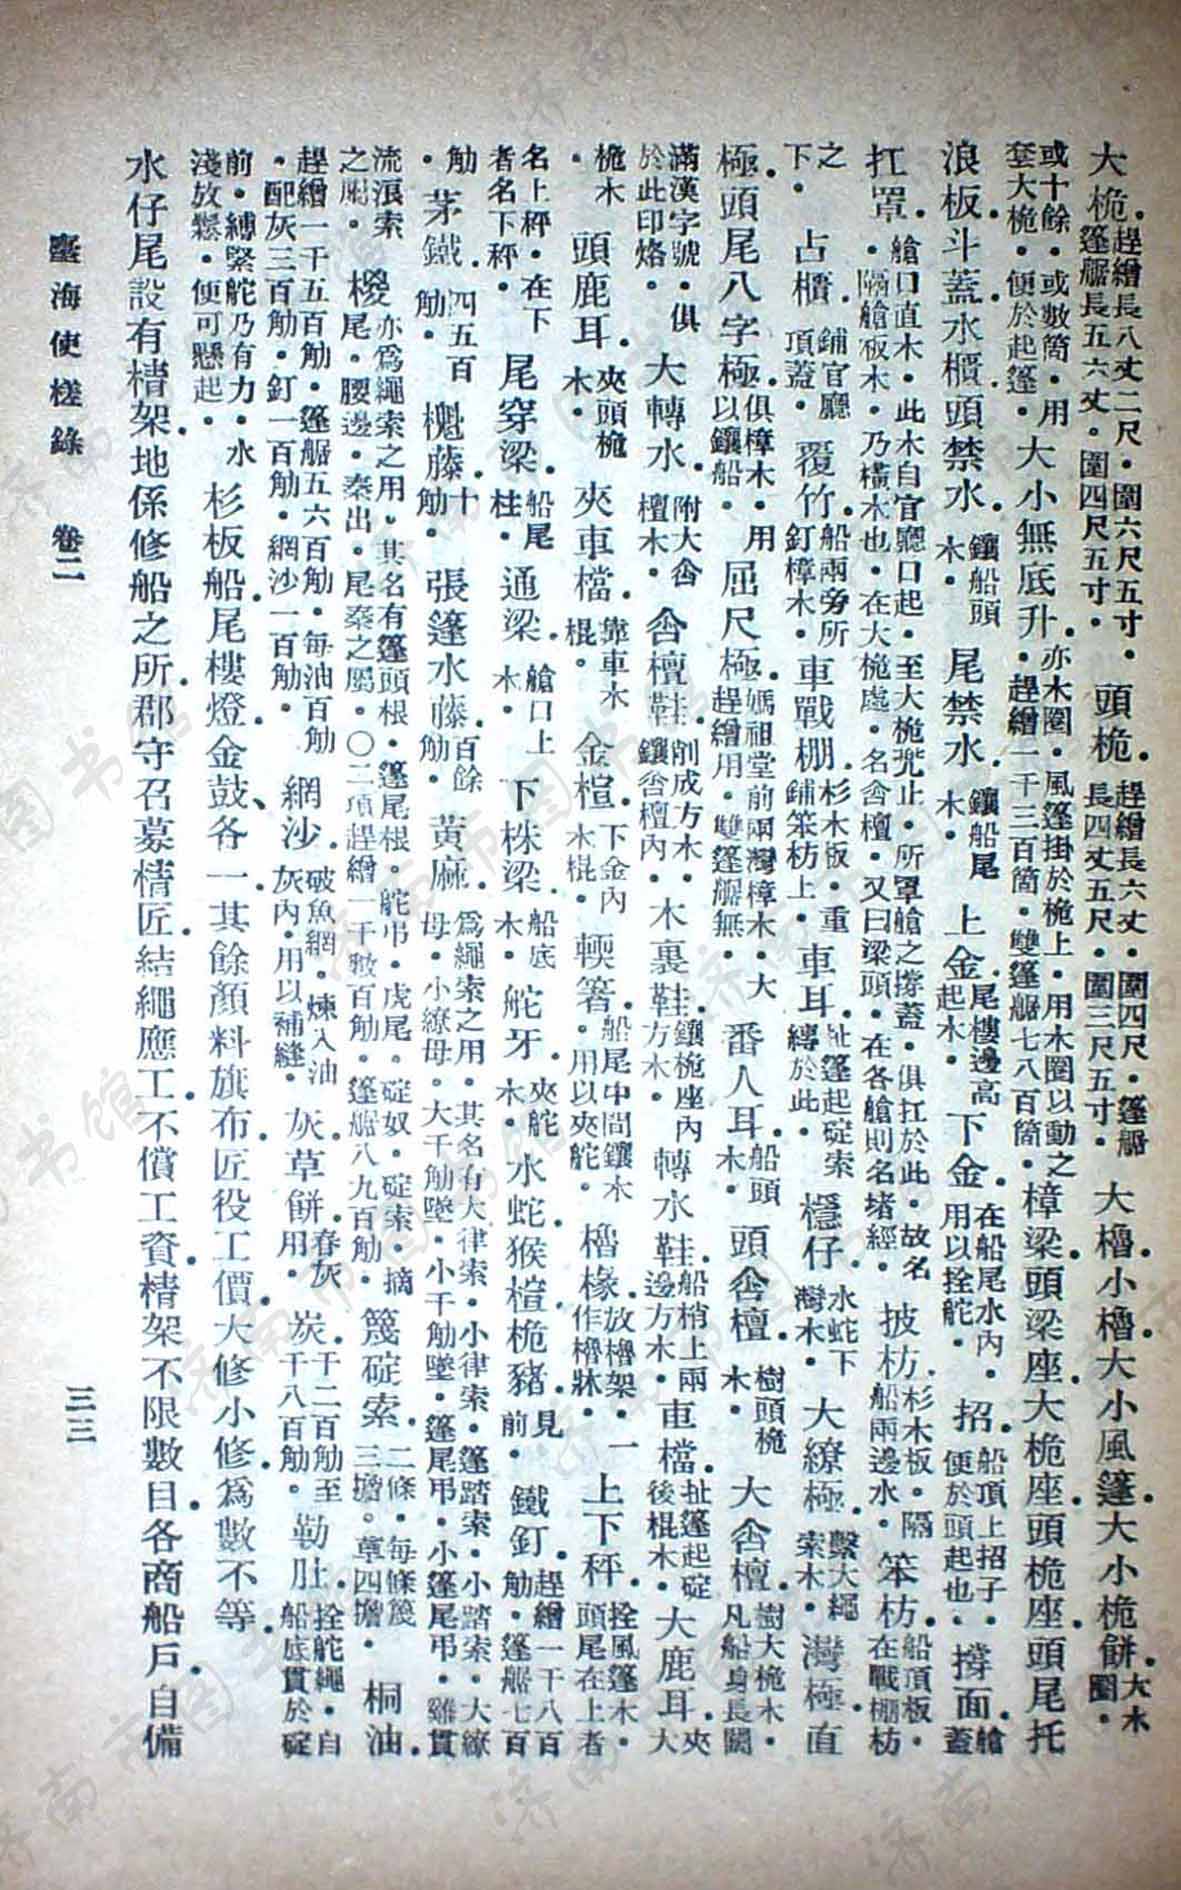 大桅趕繒長八丈二尺·圍六尺五寸·篷𦩷長五六丈·圍四尺五寸·頭桅趕繒長六丈·圍四尺·篷𦩷長四丈五尺·圍三尺五寸·大櫓小櫓大小風篷大小桅餅大木圈·
或十餘·或數箇·用套大桅·便於起篷·大小無底升亦木圈·風篷掛於桅上·用木圈以動之·趕繒一千三百箇·雙篷𦩷七八百箇·樟梁頭梁座大桅座頭桅座頭尾托
浪板斗蓋水櫃頭禁水鑲船頭木·尾禁水鑲船尾木·上金尾樓邊高起木·下金在船尾水內·用以拴舵·招船頂上招子·便於頭起也·撐面艙蓋
扛罩艙口直木·此木自官廳口起·至大桅兜止·所罩艙之撐蓋·俱扛於此·故名·隔艙板木·乃橫木也·在大桅處·名含檀·又曰梁頭·在各艙則名堵經·披枋杉木板·隔船兩邊水·笨枋船頂板·在戰棚枋
之下·占櫃鋪官廳頂蓋·覆竹船兩旁所釘樟木·車戰棚杉木板·重鋪笨枋上·車耳扯篷起碇索縛於此·穩仔水蛇下灣木·大繚極繫大繩索木·灣極直
極頭尾八字極俱樟木·用以鑲船·屈尺極媽祖堂前兩灣樟木·大趕繒用·雙篷𦩷無·番人耳船頭木·頭含檀樹頭桅木·大含檀樹大桅木·凡船身長闊
滿漢字號·俱於此印烙·大轉水附大含檀木·含檀鞋削成方木·鑲含檀內·木裏鞋鑲桅座內方木·轉水鞋船梢上兩邊方木·車檔扯篷起碇後棍木·大鹿耳夾大
桅木·頭鹿耳夾頭桅木·夾車檔靠車木棍·金楦下金內木棍·輭箸船尾中間鑲木·用以夾舵·櫓椽放櫓架·一作櫓牀·上下秤拴風篷木·頭尾在上者
名上秤·在下者名下秤·尾穿梁船尾柱·通梁艙口上木·下株梁船底木·舵牙夾舵木·水蛇猴楦桅豬見前·鐵釘趕繒一千八百觔·篷𦩷七百
觔·茅鐵四五百觔·櫆藤十觔·張篷水藤百餘觔·黃麻為繩索之用·其名有大律索·小律索·篷踏索·小踏索·大繚母·小繚母·大千觔墜·小千觔墜·篷尾吊·小篷尾吊·雞貫
流浪索之屬·㯶亦為繩索之用·其名有篷頭根·篷尾根·舵弔·虎尾·碇奴·碇索·摘尾·腰邊·秦出·尾秦之屬·○二項趕繒一千數百觔·篷𦩷八九百觔·篾碇索二條·每條篾三擔·草四擔·桐油
趕繒一千五百觔·篷𦩷五六百觔·每油百觔·配灰三百觔·釘一百觔·網沙一百觔·網沙破魚網·煉入油灰內·用以補縫·灰草餅舂灰用·炭千二百觔至千八百觔·勒肚拴舵繩·自船底貫於碇
前·縛緊舵乃有力·水淺放鬆·便可懸起·杉板船尾樓燈金鼓各一其餘顏料旗布匠役工價大修小修為數不等
水仔尾設有𣛴架地係修船之所郡守召募精匠結繩應工不償工資𣛴架不限數目各商船戶自備
臺海使槎錄　卷二　三三